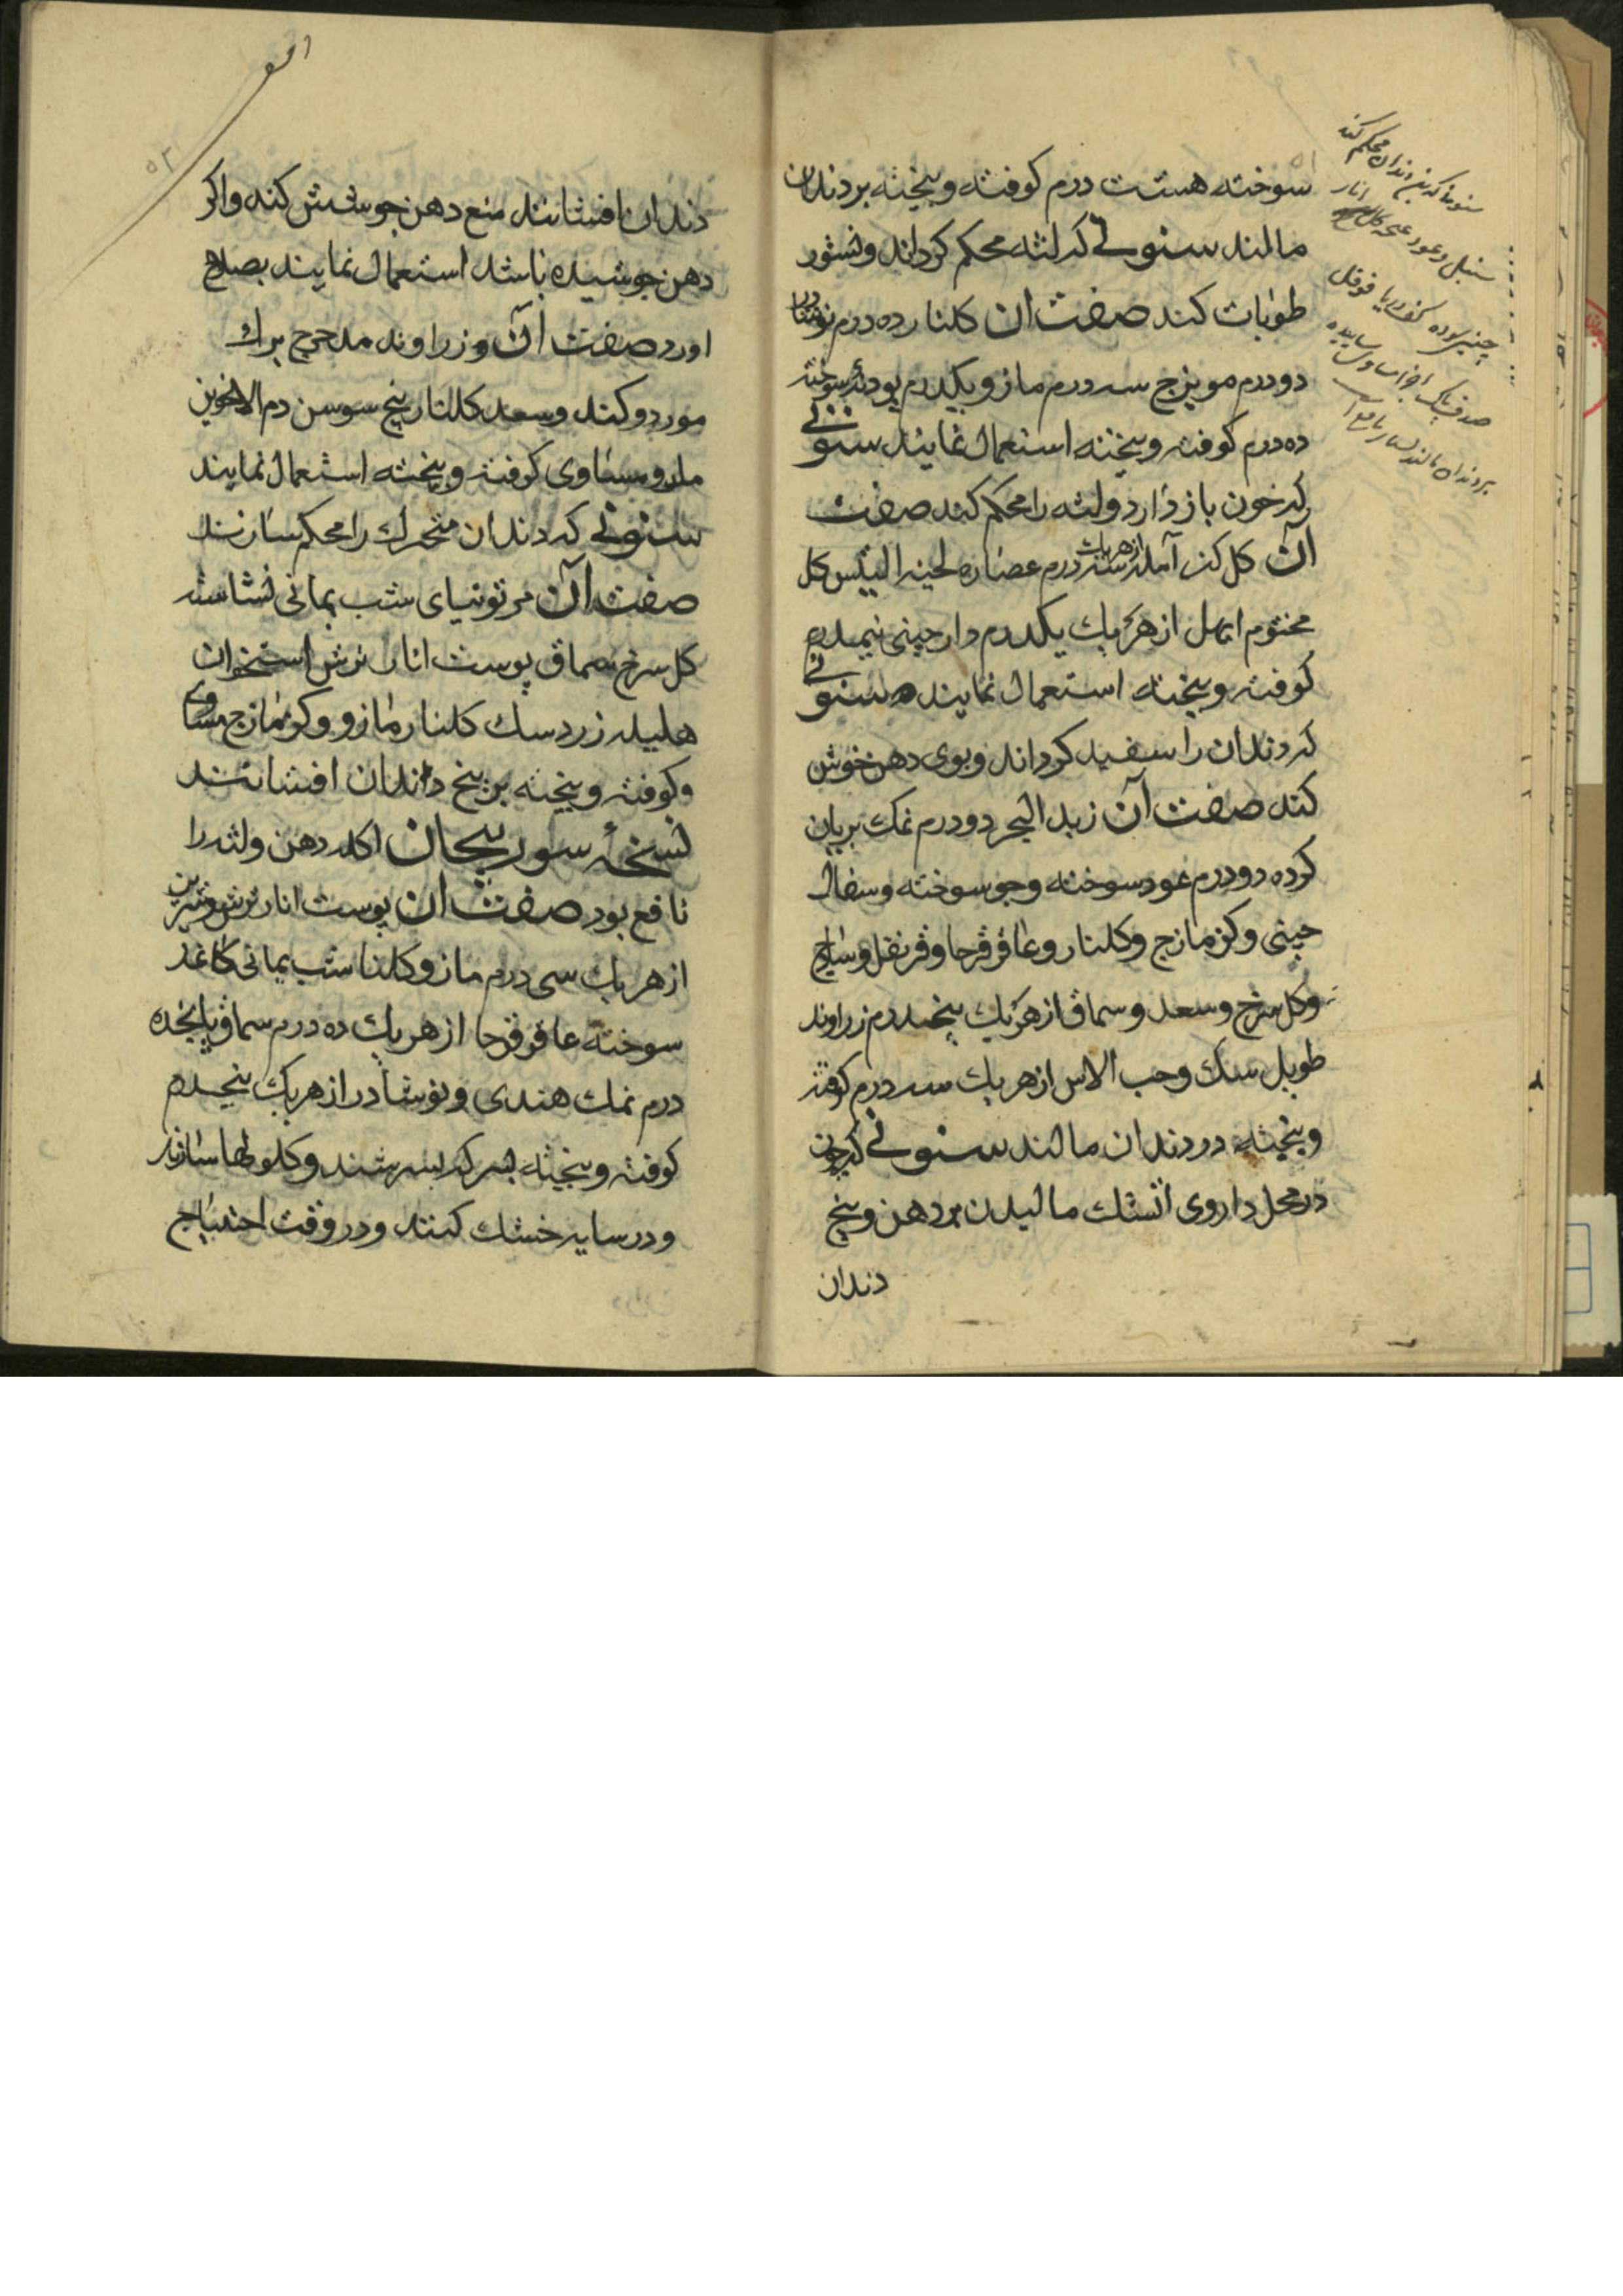 سوخته هشت درم کوفته و بیخته بر دندان
مالند سنونی که لثه محکم کرداند و نشور
طوبات کند صفت ان کلنار ده درم نوشادر
دو درم مویزج سه درم مازو یکدرم پودنه سوخته
ده درم کوفته و بیخته استعمال نمایند سنونی
که خون باز دارد و لثه را محکم کند صفت
آن کل کنر آمله از هریک سه درم عصاره لحیة التیس کل
مختوم ابهل از هر یک یکدرم دارچینی نیمدرم
کوفته و بیخته استعمال نمایند سنونی
که دندان را سفید کرداند و بوی دهن خوش
کند صفت آن زبد البحر دو درم نمک بریان
کرده دو درم عود سوخته و جو سوخته و سفال
چینی و کزمازج و کلنار و عاقرقرحا و قرنفل و ساذج
و کل سرخ و سعد و سماق از هر یک پنجدرم زراوند
طویل سک و حب الاس از هر یک سه درم کوفته
و بیخته در دندان مالند سنونی که چون
در محل داروی آتشک مالیدن بر دهن و بیخ
دندان
سنبل و عود
بر دندان مالند
دندان افشانند منع دهن جوشش کند و اکر
دهن جوشیده باشد استعمال نمایند بصلاح
اورد صفت آن زراوند مدحرج برک
مورد و کند و سعد کلنار بیخ سوسن دم الاخوین
مساوی کوفته و بیخته استعمال نمایند
سنونی که دندان متحرک را محکم سازند
صفت آن مر توتیای شب یمانی نشاسته
کل سرخ سماق پوست انار ترش استخوان
هلیله زرد سک کلنار مازو و کزمازج مساوی
و کوفته و بیخته بر بیخ دندان افشانند
نسخهٔ سوریجان اکله دهن و لثه را
نافع بود صفت ان پوست انار ترش و شیرین
از هر یک سی درم مازو و کلنا شب یمانی کاغذ
سوخته عاقرقرحا از هر یک ده درم سماق پانجده
درم نمک هندی و نوشادر از هر یک پنجدرم
کوفته و بیخته بسرکه بسرشند و کلولها سازند
و در سایه خشک کنند و در وقت احتیاج